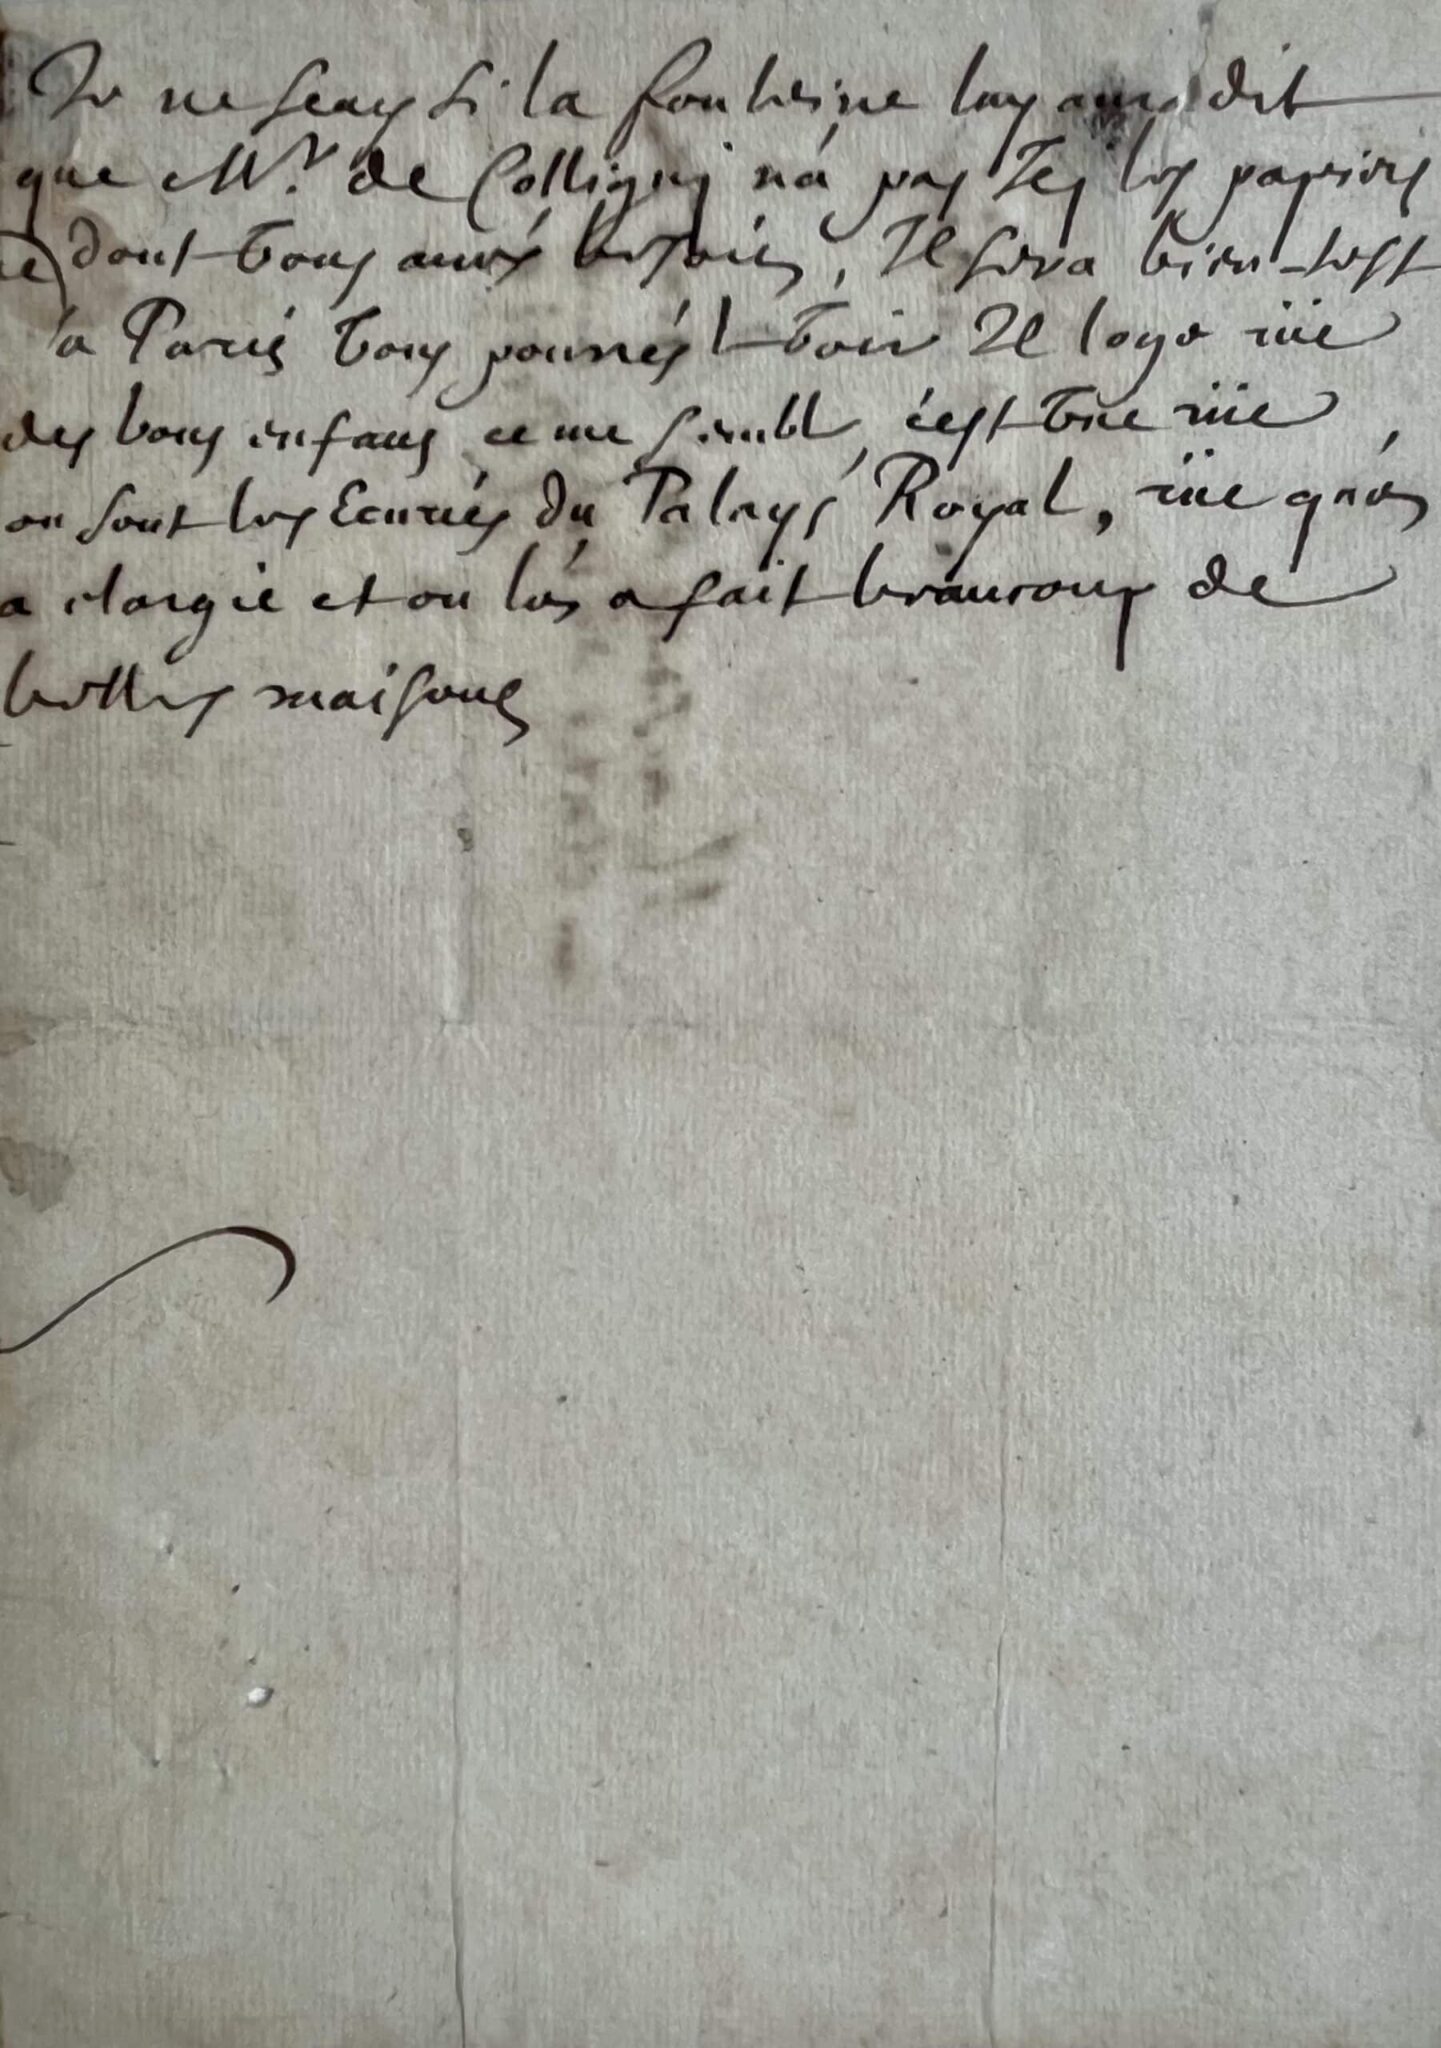 Je ne scay si la fonteine luy aura dit
que Mr. de Colligny n'a pas Icy les papiers
dont vous avés besoin, Il sera bien-tost
a Paris vous pourrés l voir Il loge rüe
des bons enfans ce me semble, c'est vne rüe
ou sont les Ecuries du Palays Royal, rüe qu'on
a elargie et ou l'on a fait beaucoup de
belles maisons